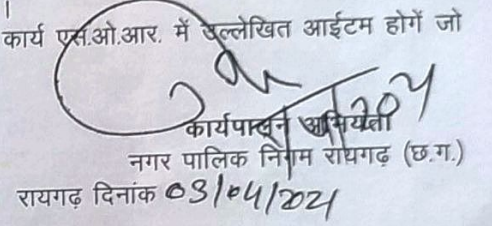 कार्य एस.ओ.आर. में उल्लेखित आईटम होगें जो
कार्यपालन अभियंता
नगर पालिक निगम रायगढ़ (छ.ग.)
रायगढ़ दिनांक 03/04/2021